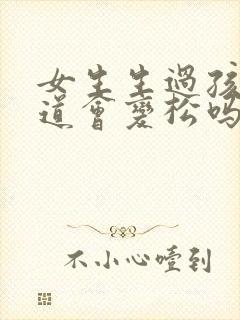 女生生过孩
道会变松吗
不小心噎到